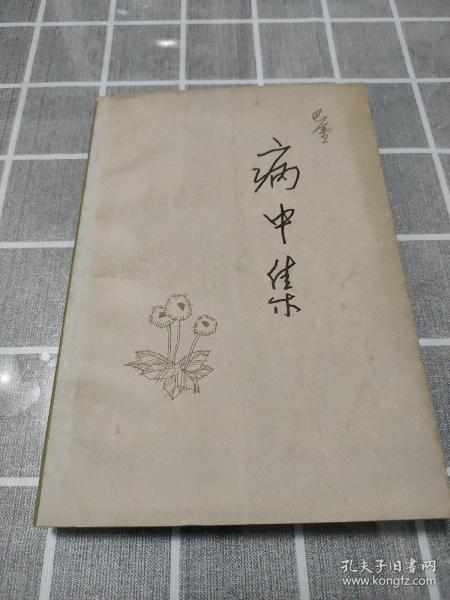 巴金
病中集
孔夫子旧书网
www.kongfz.com